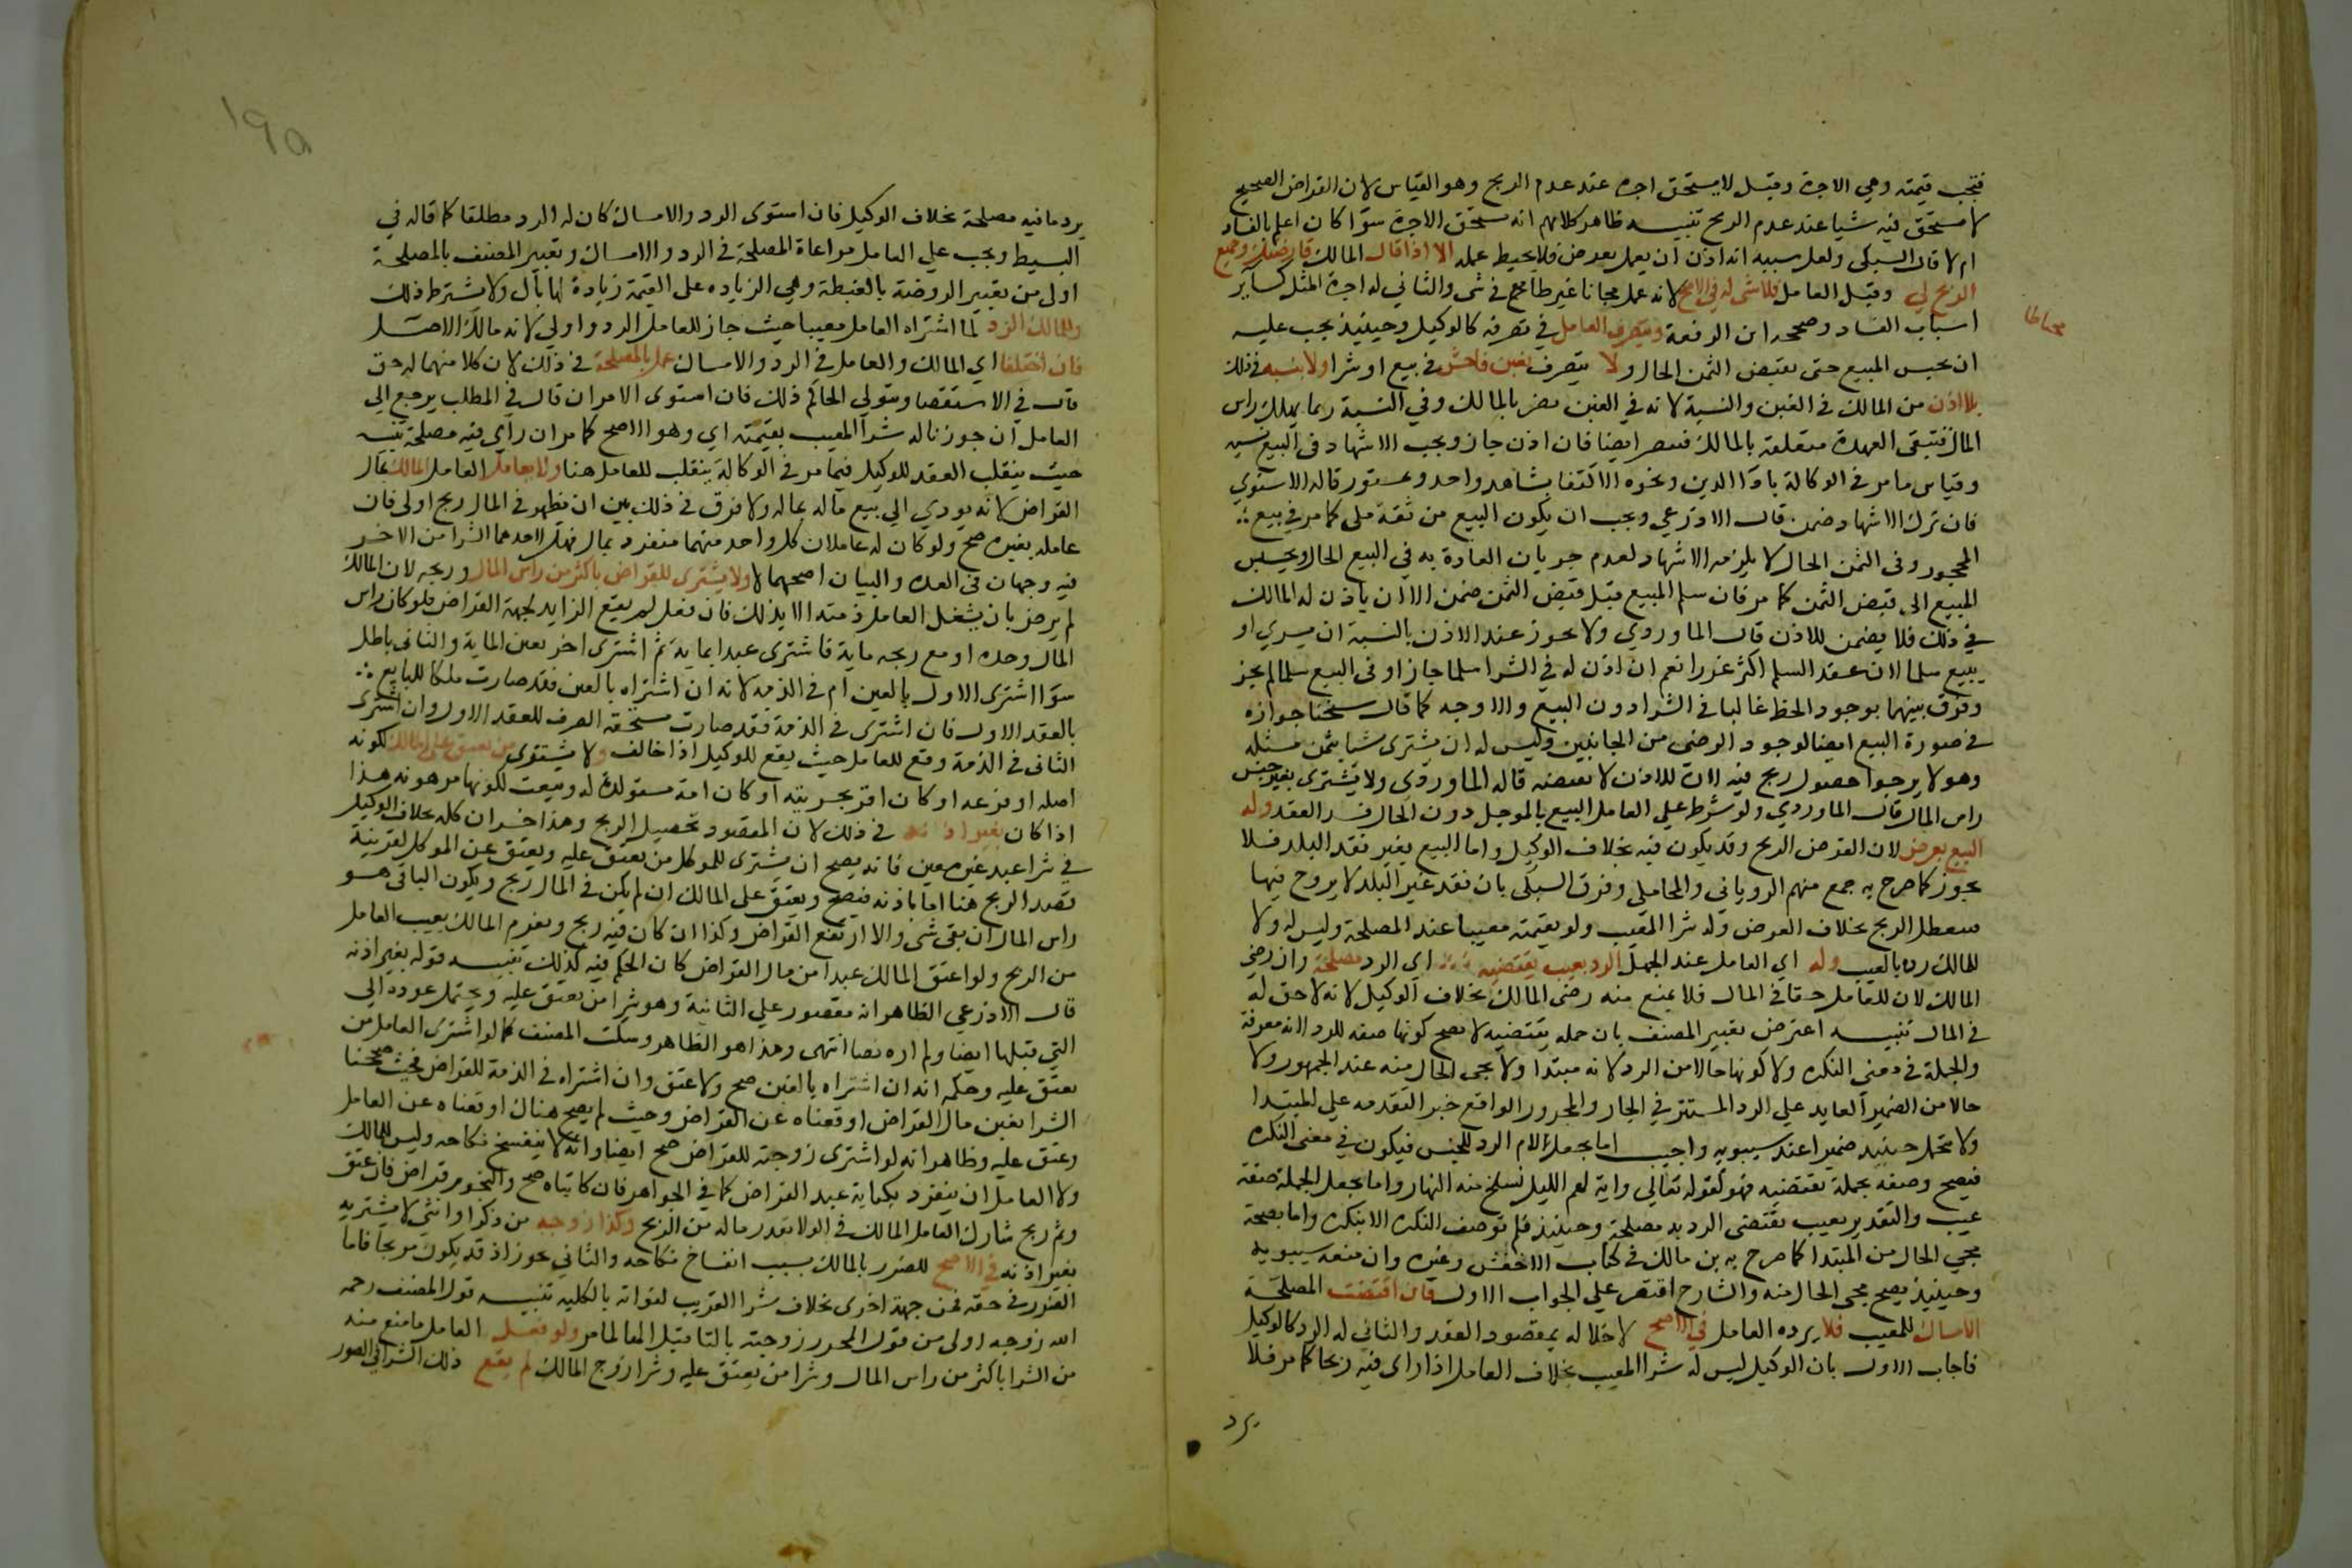 فتجب قيمته وهي الاجرة وقيل لا يستحق اجرة عند عدم الربح وهو القياس لان القراض الصحيح
لا يستحق فيه شيا عند عدم الربح تنبيه ظاهر كلامهم انه يستحق الاجرة سوا كان اعلم بالفساد
ام لا قال السبكي ولعل سببه انه اذن ان يعمل بعوض فلا يحبط عمله الا اذا قال المالك قارضتك وجميع
الربح لي وقبل العامل فلا شي له في الاصح لانه عمل مجانا غير طامع في شي والثاني له اجرة المثل كساير
اسباب الفساد وصححه ابن الرفعة ويتصرف العامل في تصرفه كالوكيل وحينيذ يجب عليه
ان يحبس المبيع حتى يقبض الثمن الحال ولا يتصرف بغبن فاحش في بيع او شرا ولا بنسيه في ذلك
بلا اذن من المالك في الغبن والنسية لانه في الغبن يضر بالمالك وفي النسية ربما يهلك راس
المال فتبقى العهدة متعلقة بالمالك فيضر ايضا فان اذن جاز ويجب الاشهاد في البيع نسيه
وقياس ما مر في الوكالة باداالدين ونحوه الاكتفا بشاهد واحد وبمستور قاله الاسنوي
فان ترك الاشهاد ضمن قال الاذرعي ويجب ان يكون البيع من ثقة ملى كما مر في بيع
المحجور وفى الثمن الحال لا يلزمه الاشهاد لعدم جريان العادة به في البيع الحال ويحبس
المبيع الى قبض الثمن كما مر فان سلم المبيع قبل قبض الثمن ضمن الا ان ياذن له المالك
في ذلك فلا يضمن للاذن قال الماوردي ولا يجوز عند الاذن بالنسية ان يشري او
يبيع سلما لان عقد السلم اكثر غررا نعم ان اذن له في الشرا سلما جاز او فى البيع سلما لم يجز
وفرق بينهما بوجود الحظ غالبا في الشرا دون البيع والاوجه كما قال شيخنا جوازه
في صورة البيع ايضا لوجود الرضى من الجانبين وليس له ان يشترى شيا بثمن مثله
وهو لا يرجوا حصول ربح فيه لان الاذن لا يقتضيه قاله الماوردي ولا يشترى بغير جنس
راس المال قال الماوردي ولو شرط علي العامل البيع بالموجل دون الحال فسد العقد وله
البيع بعرض لان الغرض الربح وقد يكون فيه بخلاف الوكيل واما البيع بغير نقد البلد فلا
يجوز كما صرح به جمع منهم الروياني والمحاملي وفرق السبكى بان نقد غير البلد لا يروج فيها
فيعطل الربح بخلاف العرض وله شرا المعيب ولو بقيمته معيبا عند المصلحة وليس له ولا
للمالك رده بالعيب وله اي العامل عند الجهل الرد بعيب تقتضيه اي الرد مصلحة وان رضي
المالك لان للعامل حقا في المال فلا يمنع منه رضى المالك بخلاف الوكيل لانه لا حق له
في المال تنبيه اعترض تعبير المصنف بان جملة تقتضيه لا يصح كونها صفه للرد لانه معرفة
والجملة في معنى النكره ولا كونها حالا من الرد لانه مبتدا ولا يجى الحال منه عند الجمهور ولا
حالا من الضمير العايد علي الرد المستتر في الجار والمجرور الواقع خبرا لتقدمه علي المبتدا
ولا يتحمل حينيد ضميرا عند سيبويه واجيب اما بجعل لام الرد للجنس فيكون في معنى النكره
فيصح وصفه بجملة تقتضيه فهو كقوله تعالي واية لهم الليل نسلخ منه النهار واما بجعل الجملة صفة
عيب والتقدير بعيب يقتضى الرد به مصلحة وحينيذ فلم توصف النكره الا بنكره واما بصحة
مجي الحال من المبتدا كما صرح به بن مالك في كتاب الاخفش وغيره وان منعه سيبويه
وحينيذ يصح مجى الحال منه والشارح اقتصر علي الجواب الاول فان اقتضت المصلحة
الامساك للمعيب فلا يرده العامل في الاصح لاخلاله بمقصود العقد والثاني له الرد كالوكيل
فاجاب الاول بان الوكيل ليس له شرا المعيب بخلاف العامل اذا راى فيه ربحا كما مر فلا
يرد
١٩٥
يرد ما فيه مصلحة بخلاف الوكيل فان استوى الرد والامساك كان له الرد مطلقا كما قاله في
البسيط ويجب علي العامل مراعاة المصلحة في الرد والامساك وتعبير المصنف بالمصلحة
اولى من تعبير الروضة بالغبطة وهي الزياده على القيمة زيادة لها بال ولا يشترط ذلك
وللمالك الرد لما اشتراه العامل معيبا حيث جاز للعامل الرد واولي لانه مالك الاصل
فان اختلفا اي المالك والعامل في الرد والامساك عمل بالمصلحة في ذلك لان كلا منهما له حق
قال في الاستقصا ويتولي الحاكم ذلك فان استوى الامران قال في المطلب يرجع الى
العامل ان جوزنا له شرا المعيب بقيمته اي وهو الاصح كما مر ان راي فيه مصلحة تنبيه
حيث ينقلب العقد للوكيل فيما مر في الوكالة ينقلب للعامل هنا ولا يعامل العامل المالك بمال
القراض لانه يودي الي بيع ماله بماله ولا فرق في ذلك بين ان يظهر في المال ربح او لى فان
عامله بغيره صح ولو كان له عاملان كل واحد منهما منفرد بمال فهل لاحدهما الشرا من الاخر
فيه وجهان في العدة والبيان اصحهما لا ولا يشترى للقراض باكثر من راس المال وربحه لان المالك
لم يرض بان يشغل العامل ذمته الا بذلك فان فعل لم يقع الزايد لجهة القراض فلو كان راس
المال وحده او مع ربحه ماية فاشترى عبدا بماية ثم اشترى اخر بعين الماية والثاني باطل
سوا اشترى الاول بالعين ام في الذمة لانه ان اشتراه بالعين فقد صارت ملكا للبايع
بالعقد الاول فان اشترى في الذمة فقد صارت مستحقة الصرف للعقد الاول وان اشترى
الثانى في الذمة وقع للعامل حيث يقع للوكيل اذا خالف ولا يشترى من يعتق على المالك لكونه
اصله او فرعه او كان اقر بحريته او كان امة مستولدة له وبيعت لكونها مرهونه هذا
اذا كان بغير اذنه في ذلك لان المقصود تحصيل الربح وهذا خسران كله بخلاف الوكيل
في شرا عبد غير معين فانه يصح ان يشترى للموكل من يعتق عليه ويعتق عن الموكل لقرينة
قصد الربح هنا اما باذنه فيصح ويعتق على المالك ان لم يكن في المال ربح ويكون الباقي هو
راس المال ان بقي شي والا ارتفع القراض وكذا ان كان فيه ربح ويغرم المالك نصيب العامل
من الربح ولو اعتق المالك عبدا من مال القراض كان الحكم فيه كذلك تنبيه قوله بغير اذنه
قال الاذرعي الظاهر انه مقصور علي الثانية وهو شرا من يعتق عليه ويحتمل عوده الي
التي قبلها ايضا ولم اره نصا انتهى وهذا هو الظاهر وسكت المصنف عما لو اشترى العامل من
يعتق عليه وحكمه انه ان اشتراه بالعين صح ولا عتق وان اشتراه في الذمة للقراض فحيث صححنا
الشرا بعين مال القراض اوقعناه عن القراض وحيث لم يصح هناك اوقعناه عن العامل
وعتق عليه وظاهر انه لو اشترى زوجته للقراض صح ايضا وانه لا ينفسخ نكاحه وليس للمالك
ولا العامل ان ينفرد بكتابة عبد القراض كما في الجواهر فان كاتباه صح والنجوم قراض فان عتق
وثم ربح شارك العامل المالك في الولا بقدر ماله من الربح وكذا زوجه من ذكر او انثي لا يشتريه
بغير اذنه في الاصح للضرر بالمالك بسبب انفساخ نكاحه والثاني يجوز اذ قد يكون مربحا فاما
الضرر في حقه فمن جهة اخرى بخلاف شرا القريب لفواته بالكليه تنبيه قول المصنف رحمه
الله زوجه اولى من قول المحرر زوجته بالتا قبل الها لما مر ولو فعل العامل ما منع منه
من الشرا باكثر من راس المال وشرا من يعتق عليه وشرا زوج المالك لم يقع ذلك الشرا في الصور